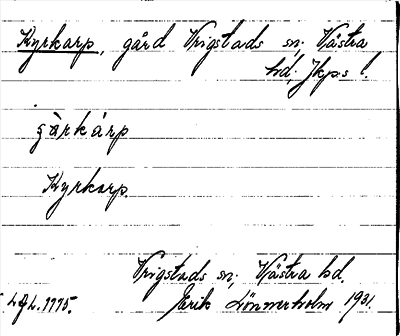 Kyrkarp, gård Vrigstads sn; Västra
hd; Jkps l.
Kyrkarp.
Vrigstads sn; Västra hd.
Erik Lönnerholm 1931